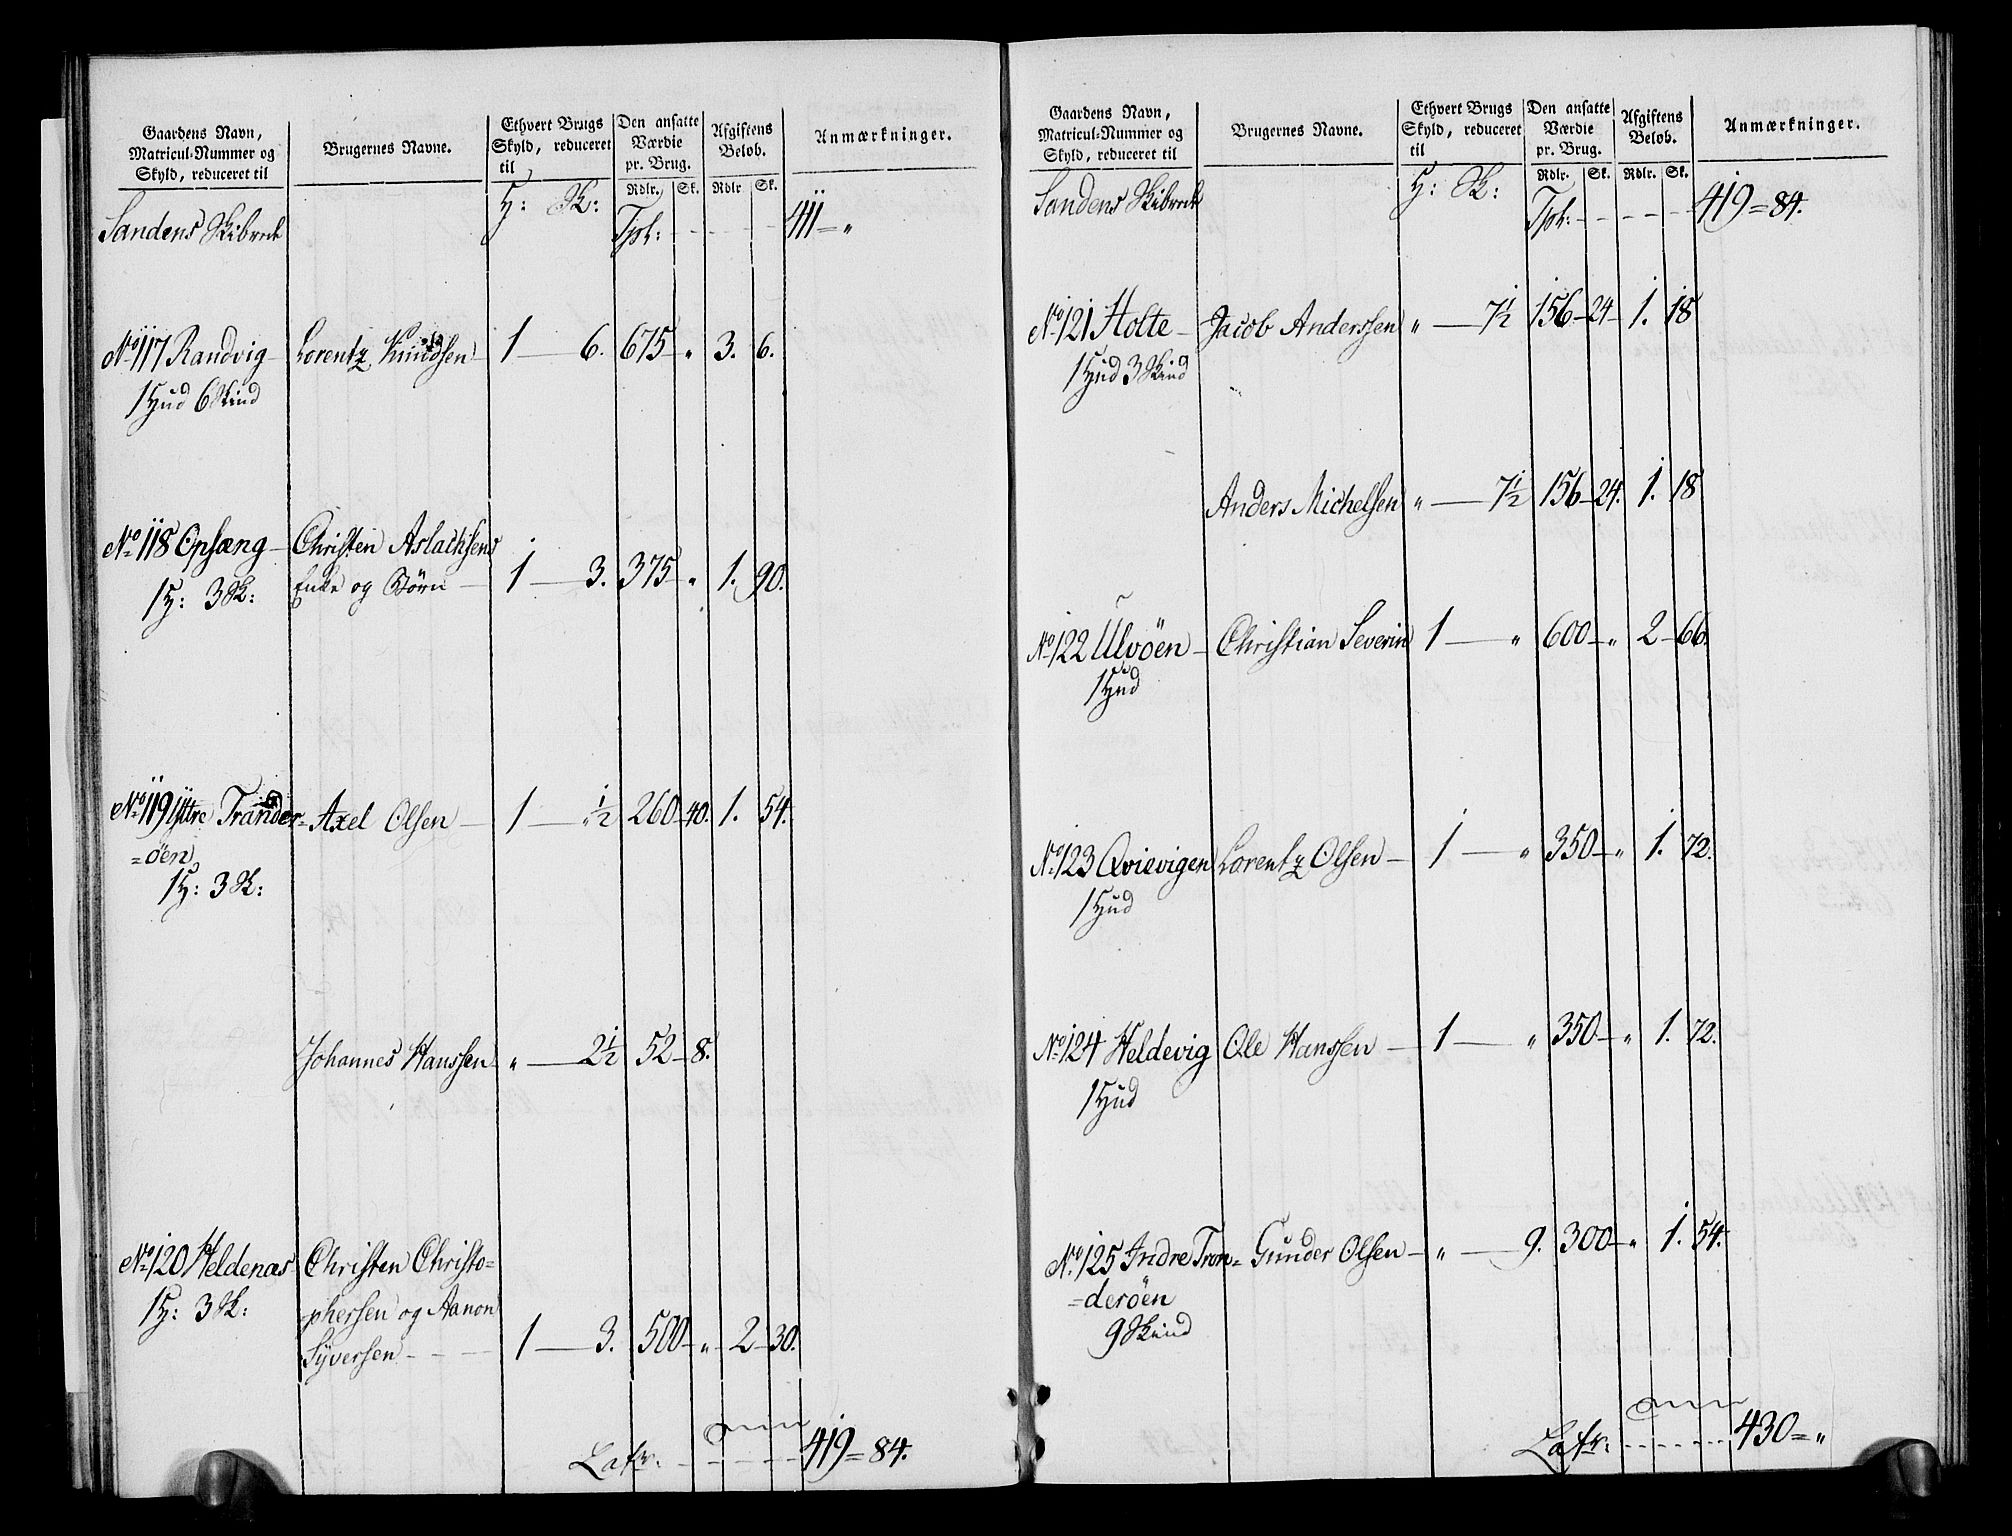 Gaardens Navn,
Matricul-Nummer og
Skyld, reduceret til
Brugernes Navne.
Ethvert Brugs
Skyld, reduceret
til
Den ansatte
Værdie
pr. Brug.
Rdlr. Sk.
Afgiftens
Beløb.
Rdlr Sk.
Anmærkninger.
Sandens Skibrede H: Sk: Tpt: - - - - - 411 = "
No 117 Randvig - Lorentz Knudsen - 1 — 6. 675 - " 3. 6.
1 Hud 6 Skind
No 118 Opsæng - Christen Aslachsens
1 H: 3 Sk: Enke og Børn — 1 — 3. 375 - " 1. 90.
No 119 Yttre Trander= Axel Olsen — 1 — " ½ 260 - 40. 1. 54.
=öen
1 H: 3 Sk:
Johannes Hanssen - " — 2½ 52 - 8.
No 120 Heldenæs Christen Christo=
1 H: 3 Sk: phersen og Aanon
Syversen - - - 1 — 3. 500 - " 2 - 30.
Latr: - - - - - 419 = 84.
Gaardens Navn,
Matricul-Nummer og
Skyld, reduceret til
Brugernes Navne.
Ethvert Brugs
Skyld, reduceret
til
Den ansatte
Værdie
pr. Brug.
Rdlr. Sk.
Afgiftens
Beløb.
Rdlr. Sk.
Anmærkninger.
Sandens Skibrede H: Sk: Tpt: - - - - - 419 = 84.
No 121 Holte - Jacob Anderssen " — 7½ 156 - 24 - 1. 18
1 Hud 3 Skind
Anders Michelsen " — 7½ 156 - 24. 1. 18
No 122 Ulvöen - Christian Severin 1 — " 600 - " 2 - 66.
1 Hud
No 123 Qvievigen Lorentz Olsen — 1 — " 350 - " 1. 72.
1 Hud
No 124 Heldevig Ole Hanssen — 1 — " 350 - " 1. 72.
1 Hud
No 125 Indre Tron= Gunder Olsen - " — 9. 300 - " 1. 54.
=deröen
9 Skind
Latr: - - - - - 430 = "